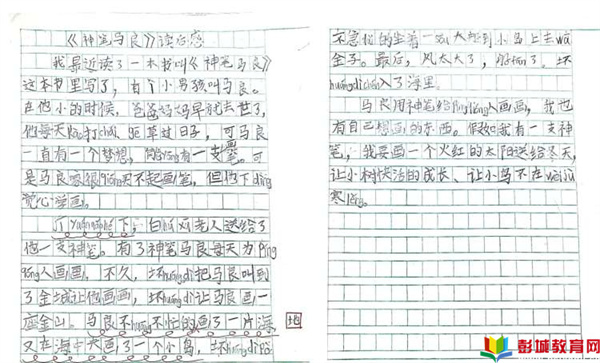 《神笔马良》读后感
我最近读了一本书叫《神笔马良》
这本书里写了,有个小男孩叫马良。
在他小的时候,爸爸妈妈早就去世了,
他每天kǎo打chái 割草过日子,可马良
一直有一个梦想,有一支笔。可
是马良家很qióng买不起画笔,但他下dìng
决心学画。
一支神笔。有了神笔马良每天为pín
qióng人画画,不久,坏huángdì把马良叫到
了金 让他画画,坏huángdì让马良画一
座金山。马良不huāng不忙的画了一片海
又在海中央画了一个小岛,坏huángdì
地
金子。最后,风太大了,坏
huángdìchén入了海里。
马良用神笔给pínqióng人画画,我也
有自己想画的东西。假如我有一支神
笔,我要画一个火红的太阳送给冬天,
让小树快活的成长、让小鸟不在wèijù
寒lěng。
彭城教育网